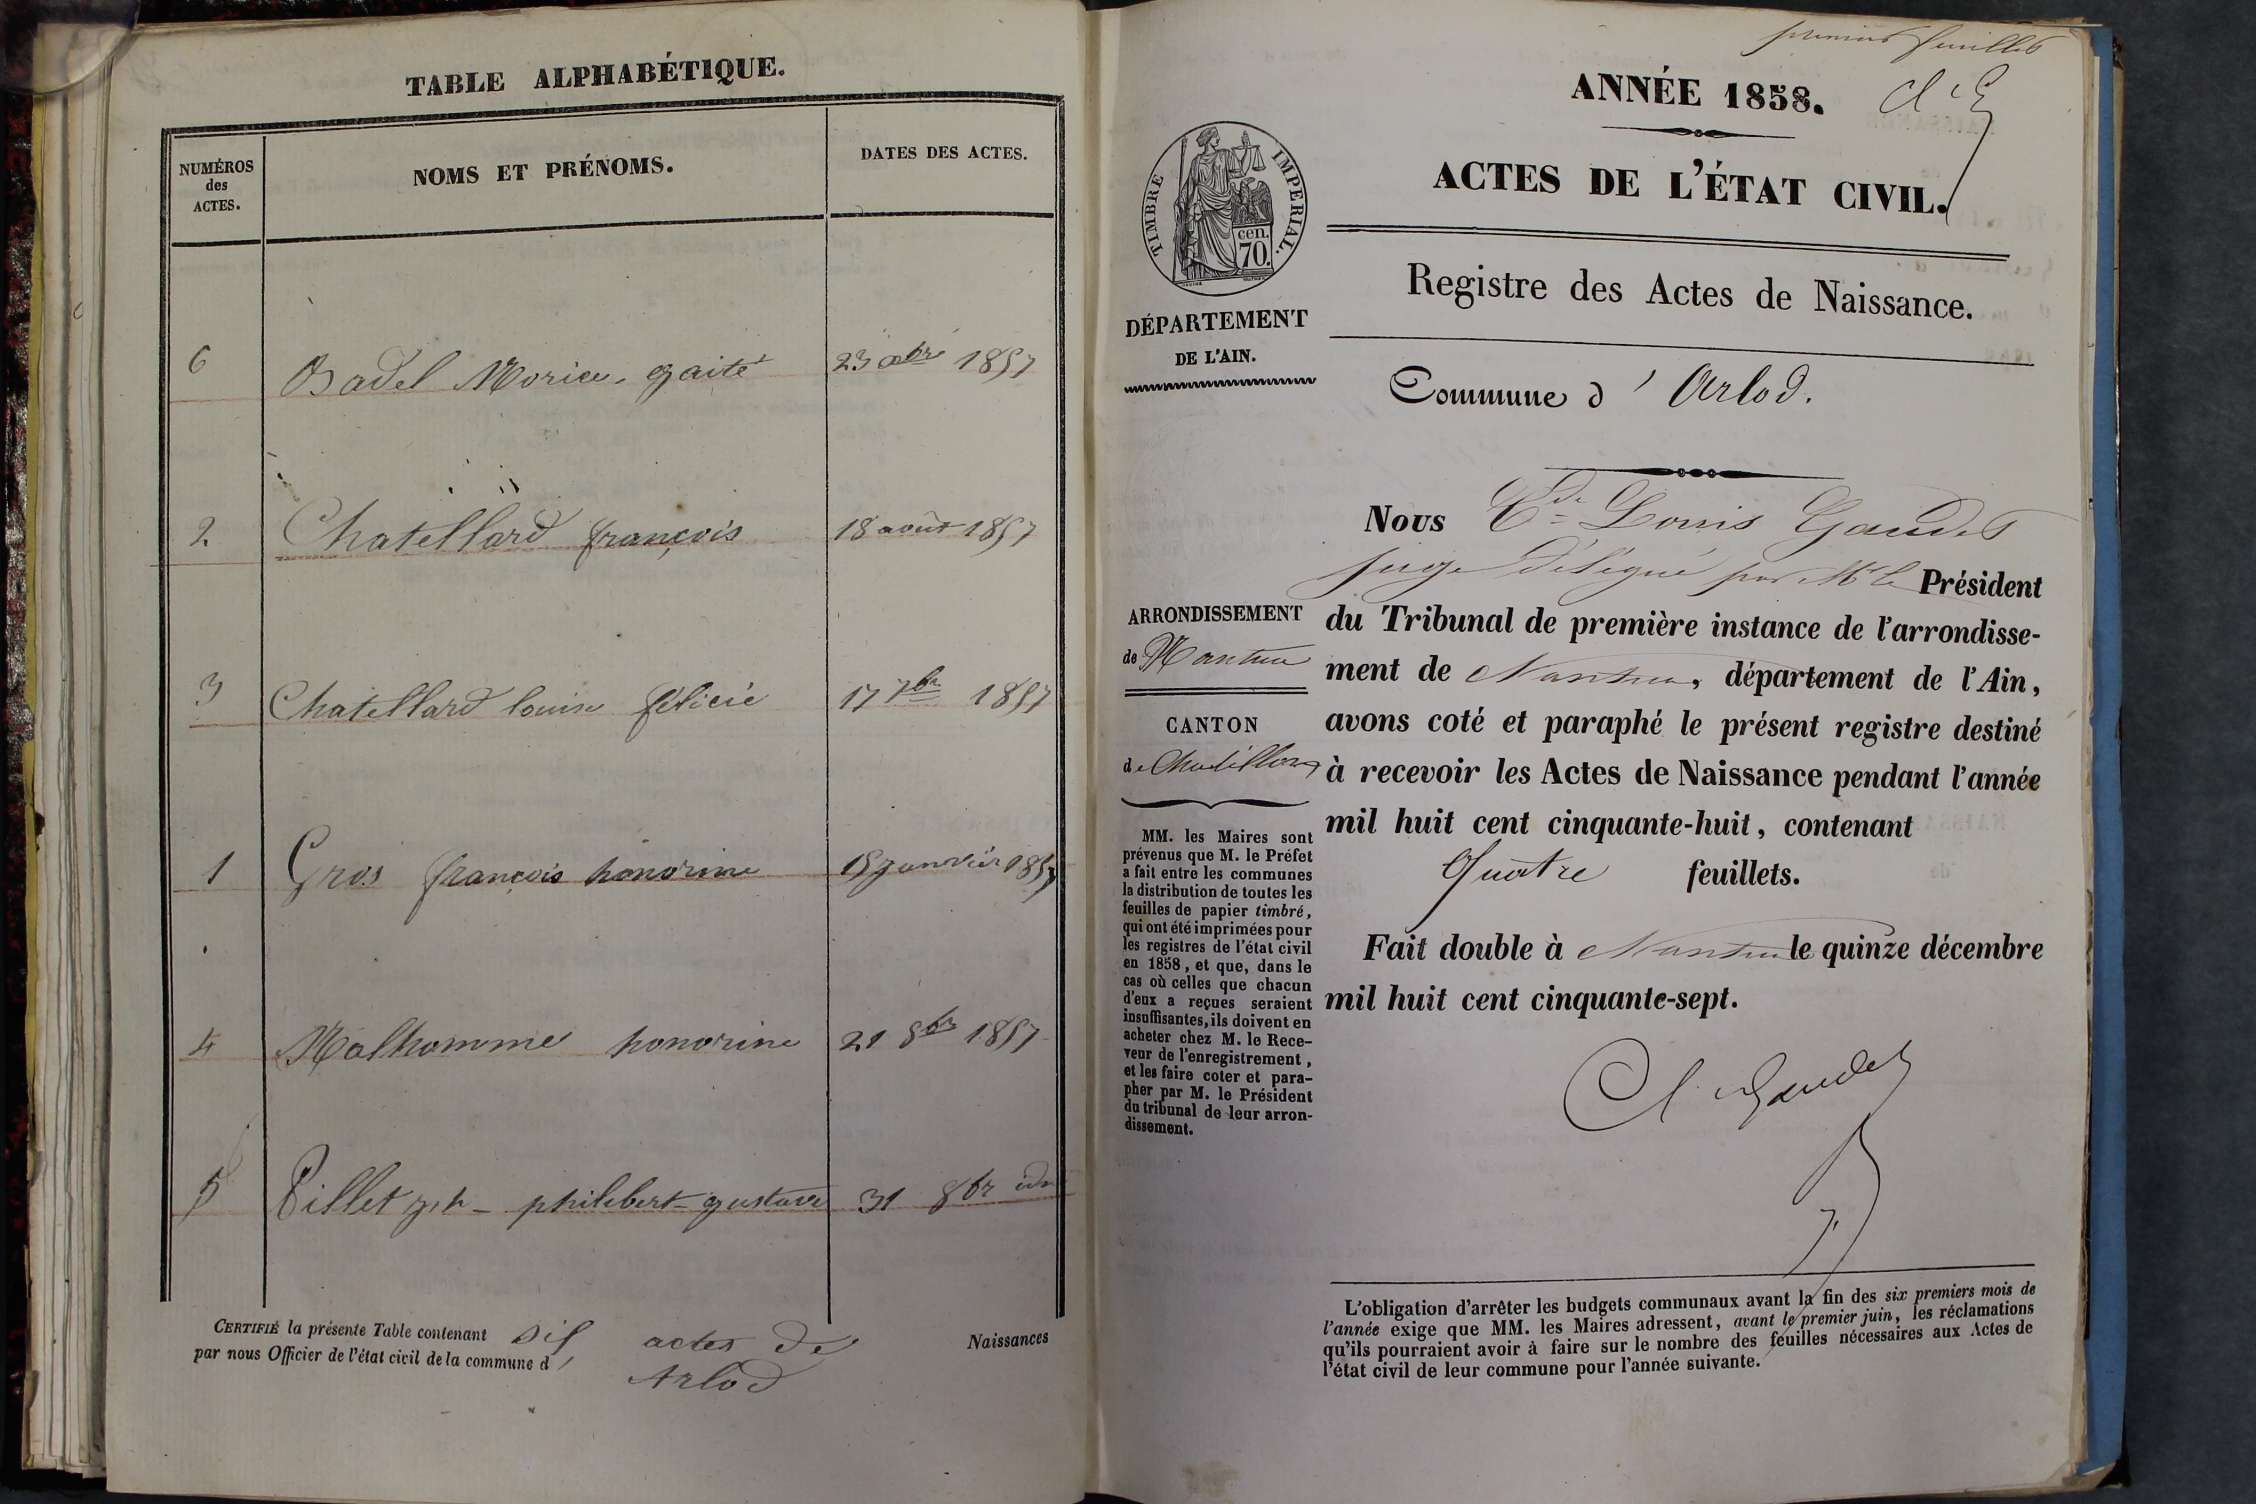 TABLE ALPHABÉTIQUE.
NUMÉROS
des
ACTES.
NOMS ET PRÉNOMS.
DATES DES ACTES.
6 Badel Morice gaité 23 1857
2 Chatellard françois 18 août 1857
3 Chatellard louise félicie 17 7bre 1857
1 Gros françois honorine 15 janvier 1857
4 Malhomme honorine 21 8bre 1857
5 Pillet philibert-gustave 31 8br idm
CERTIFIÉ la présente Table contenant six actes de Naissances
par nous Officier de l'état civil de la commune d'Arlod
premier feuillet
ANNÉE 1858.
ACTES DE L'ÉTAT CIVIL.
TIMBRE IMPÉRIAL.
cen.
70.
DÉPARTEMENT
DE L'AIN.
Registre des Actes de Naissance.
Commune d'Arlod.
ARRONDISSEMENT
de Nantua
CANTON
de Chatillon
MM. les Maires sont
prévenus que M. le Préfet
a fait entre les communes
la distribution de toutes les
feuilles de papier timbré,
qui ont été imprimées pour
les registres de l'état civil
en 1858, et que, dans le
cas où celles que chacun
d'eux a reçues seraient
insuffisantes, ils doivent en
acheter chez M. le Rece-
veur de l'enregistrement,
et les faire coter et para-
pher par M. le Président
du tribunal de leur arron-
dissement.
Nous Cde Louis Gaudet
juge délégué par Mr le Président
du Tribunal de première instance de l'arrondisse-
ment de Nantua, département de l'Ain,
avons coté et paraphé le présent registre destiné
à recevoir les Actes de Naissance pendant l'année
mil huit cent cinquante-huit, contenant
Quatre feuillets.
Fait double à Nantua le quinze décembre
mil huit cent cinquante-sept.
Cl. Gaudet
L'obligation d'arrêter les budgets communaux avant la fin des six premiers mois de
l'année exige que MM. les Maires adressent, avant le premier juin, les réclamations
qu'ils pourraient avoir à faire sur le nombre des feuilles nécessaires aux Actes de
l'état civil de leur commune pour l'année suivante.